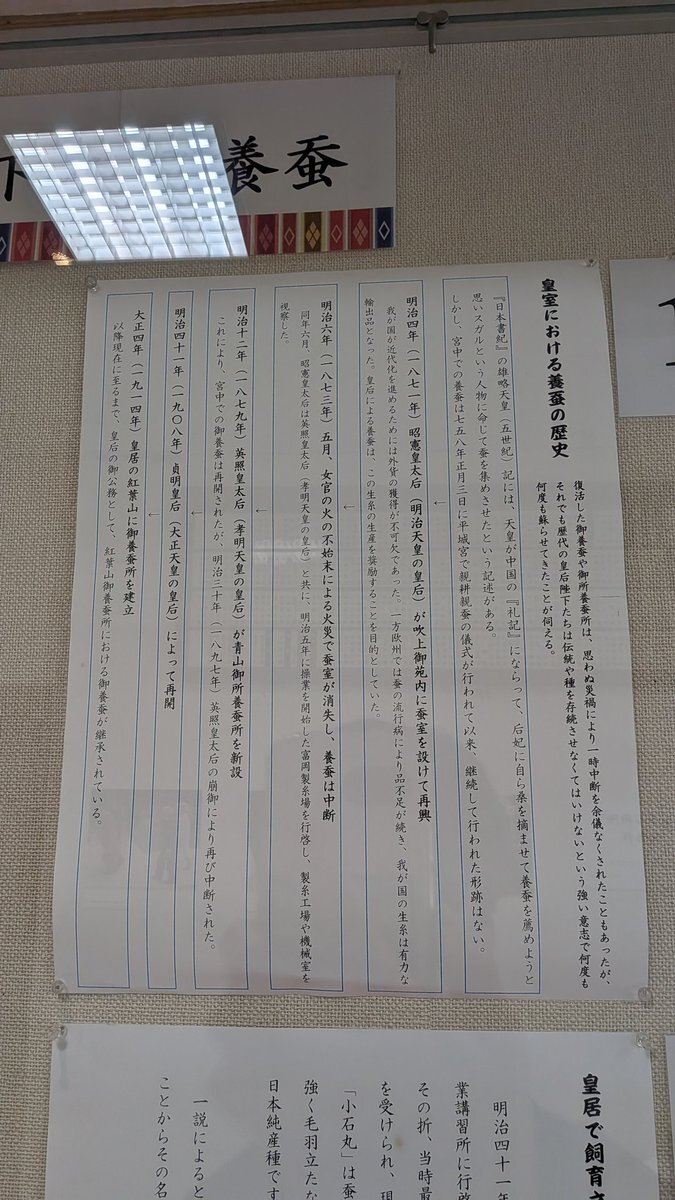 下
養蚕
皇室における養蚕の歴史
復活した御養蚕や御所養蚕所は、思わぬ災禍により一時中断を余儀なくされたこともあったが、
それでも歴代の皇后陛下たちは伝統や種を存続させなくてはいけないという強い意志で何度も
何度も蘇らせてきたことが伺える。
『日本書紀』の雄略天皇（五世紀）記には、天皇が中国の『礼記』にならって、后妃に自ら桑を摘ませて養蚕を薦めようと
思いスガルという人物に命じて蚕を集めさせたという記述がある。
しかし、宮中での養蚕は七五八年正月三日に平城宮で親耕親蚕の儀式が行われて以来、継続して行われた形跡はない。
←
明治四年（一八七一年）昭憲皇太后（明治天皇の皇后）が吹上御苑内に蚕室を設けて再興
我が国が近代化を進めるためには外貨の獲得が不可欠であった。一方欧州では蚕の流行病により品不足が続き、我が国の生糸は有力な
輸出品となった。皇后による養蚕は、この生糸の生産を奨励することを目的としていた。
←
明治六年（一八七三年）五月、女官の火の不始末による火災で蚕室が消失し、養蚕は中断
同年六月、昭憲皇太后は英照皇太后（孝明天皇の皇后）と共に、明治五年に操業を開始した富岡製糸場を行啓し、製糸工場や機械室を
視察した。
←
明治十二年（一八七九年）英照皇太后（孝明天皇の皇后）が青山御所養蚕所を新設
これにより、宮中での御養蚕は再開されたが、明治三十年（一八九七年）英照皇太后の崩御により再び中断された。
←
明治四十一年（一九〇八年）貞明皇后（大正天皇の皇后）によって再開
←
大正四年（一九一四年）皇居の紅葉山に御養蚕所を建立
以降現在に至るまで、皇后の御公務として、紅葉山御養蚕所における御養蚕が継承されている。
皇居で飼育さ
明治四十一年
業講習所に行啓
その折、当時最
を受けられ、現
「小石丸」は蚕
強く毛羽立たな
日本純産種です
一説によると
ことからその名